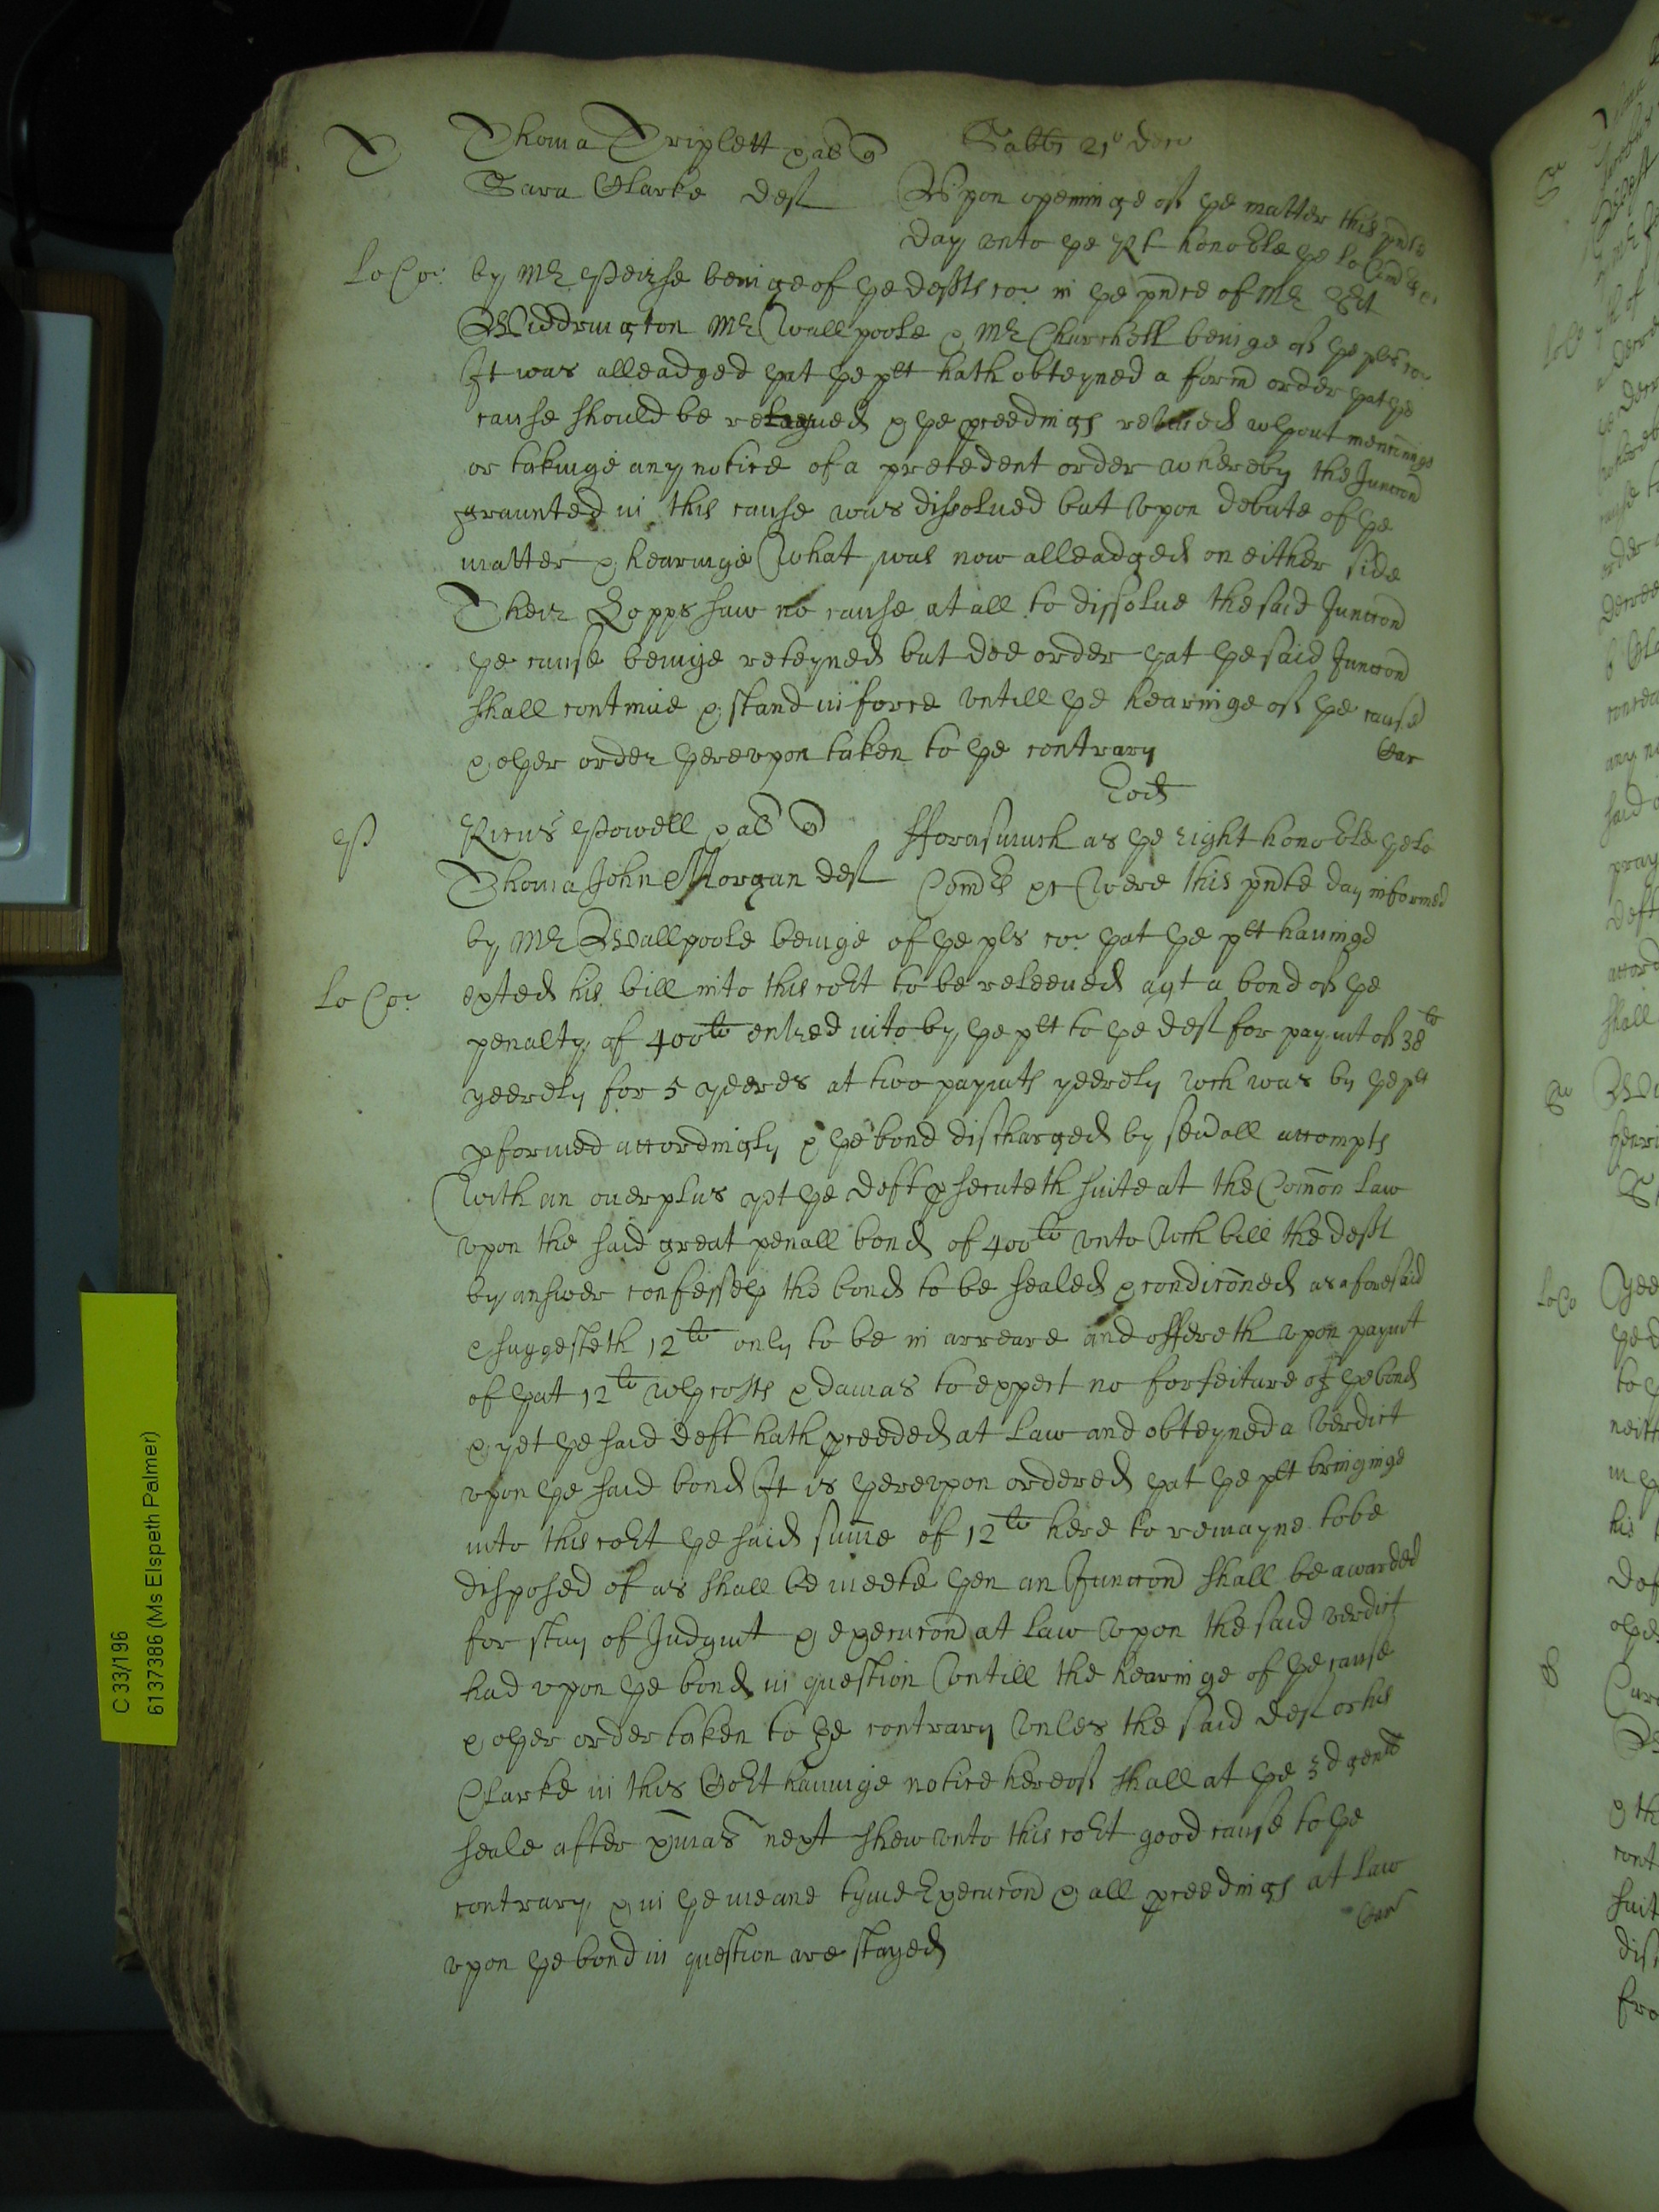 T Thoma Triplett q ab q Sabbti 21º Dec
Sara Clarke deft Vpon openinge of ye matter this pnte
day vnto ye Rt honoble ye lo Com
lo Cor: by Mr Peirse beinge of ye defts cor in ye pnce of Mr Srt
Widdrington Mr Wallpoole & Mr Churchill beinge of ye pls cor
It was alleadged yat ye plt hath obteyned a formr order yat ye
cause should be reteyned & ye pceedings wthout mencinge
or takinge any notice of a precedent order whereby the Junccon
graunted in this cause was dissolued but vpon debate of ye
matter & hearinge what was now alleadged on either side
Their Lopps saw no cause at all to dissolue the said Junccon
ye cause beinge reteyned but doe order yat ye said Junccon
shall continue & stand in force vntill ye hearinge of ye cause
& oyer order yerevpon taken to ye contrary
Eod
P Ricus Powell q ab q fforasmuch as ye right honoble ye lo
Thoma John Morgan deft Comrs &c were this pnte day informed
by Mr Wallpoole beinge of ye pls cor yat ye plt hauinge
lo Cor exted his bill into this cort to be releeued agt a bond of ye
penalty of 400li entred into by ye plt to ye deft for paymt of 38li
yeerely for 5 yeeres at two paymts yeerely wch was by ye plt
pformed accordingly & ye bond discharged by seuall accompts
with an ouerplus yet ye deft psecuteth suite at the Comon law
vpon the said great penall bond of 400li vnto wch bill the deft
by answer confessey the bond to be sealed & condiconed as aforesaid
& suggesteth 12li only to be in arreare and offereth vpon paymt
of yat 12li wth costs & damas to expect no forfeiture of ye bond
& yet ye said deft hath pceeded at law and obteyned a verdict
vpon ye said bond It is yerevpon ordered yat ye plt bringinge
into this cort ye said sume of 12li here to remayne to be
disposed of as shall be meete yen an Junccon shall be awarded
for stay of Judgmt & execucon at law vpon the said verdict
had vpon ye bond in question vntill the hearinge of ye cause
& oyer order taken to ye contrary vnles the said deft or his
Clarke in this Cort hauinge notice hereof shall at ye 3d genll
seale after xpmas next shew vnto this cort good cause to ye
contrary & in ye meane tyme Execucon & all pceedings at law
vpon ye bond in question are stayed
C 33/196
6137386 (Ms Elspeth Palmer)